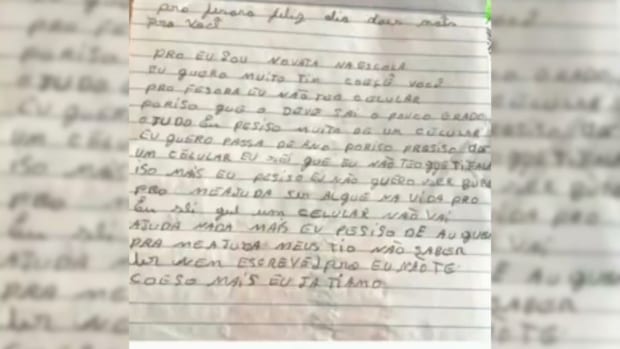 pro fesora feliz dia dous mais
pra você
PRO EU SOU NOVATA NA ESCOLA
EU QUERO MUITO TIM COESÊ VOCÊ
PRO FESORA EU NÃO TEO CELULAR
PORISO QUE O DEVE SAI O POUCO ERADO
AJUDA EU PESISO MUITO DE UM CELULAR
EU QUERO PASSA DE ANO PORISO PRESISO DE
UM CELULAR EU SEI QUE EU NÃO TEO
ISO MAIS EU PESISO EU NÃO QUERO SER BURA
PRO ME AJUDA SER ALGUE NA VIDA PRO
EU SEI QUE UM CELULAR NÃO VAI
AJUDA NADA MAIS EU PESISO DE AUGUEI
PRA ME AJUDA MEUS TIO NÃO SABER
ler NEM ESCREVE) pro EU NÃO TE
COESO MAIS EU JA TIAMO